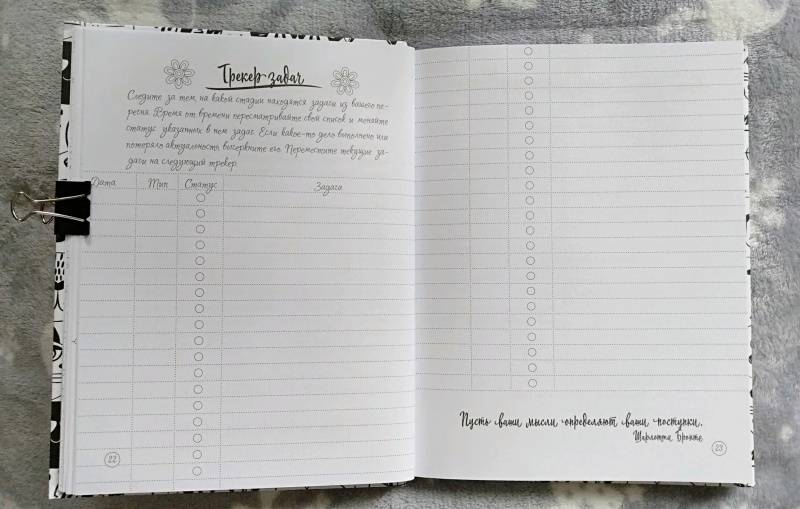 Трекер задач
Следите за тем, на какой стадии находятся задачи из вашего пе-
ресня. Время от времени пересматривайте свой список и меняйте
статус указанных в нем задач. Если какое-то дело выполнено или
потеряло актуальность, вычеркните его. Переместите текущие за-
дачи на следующий трекер.
Дата Тип Статус Задача
22
Пусть ваши мысли определяют ваши поступки.
Шарлотта Бронте
23